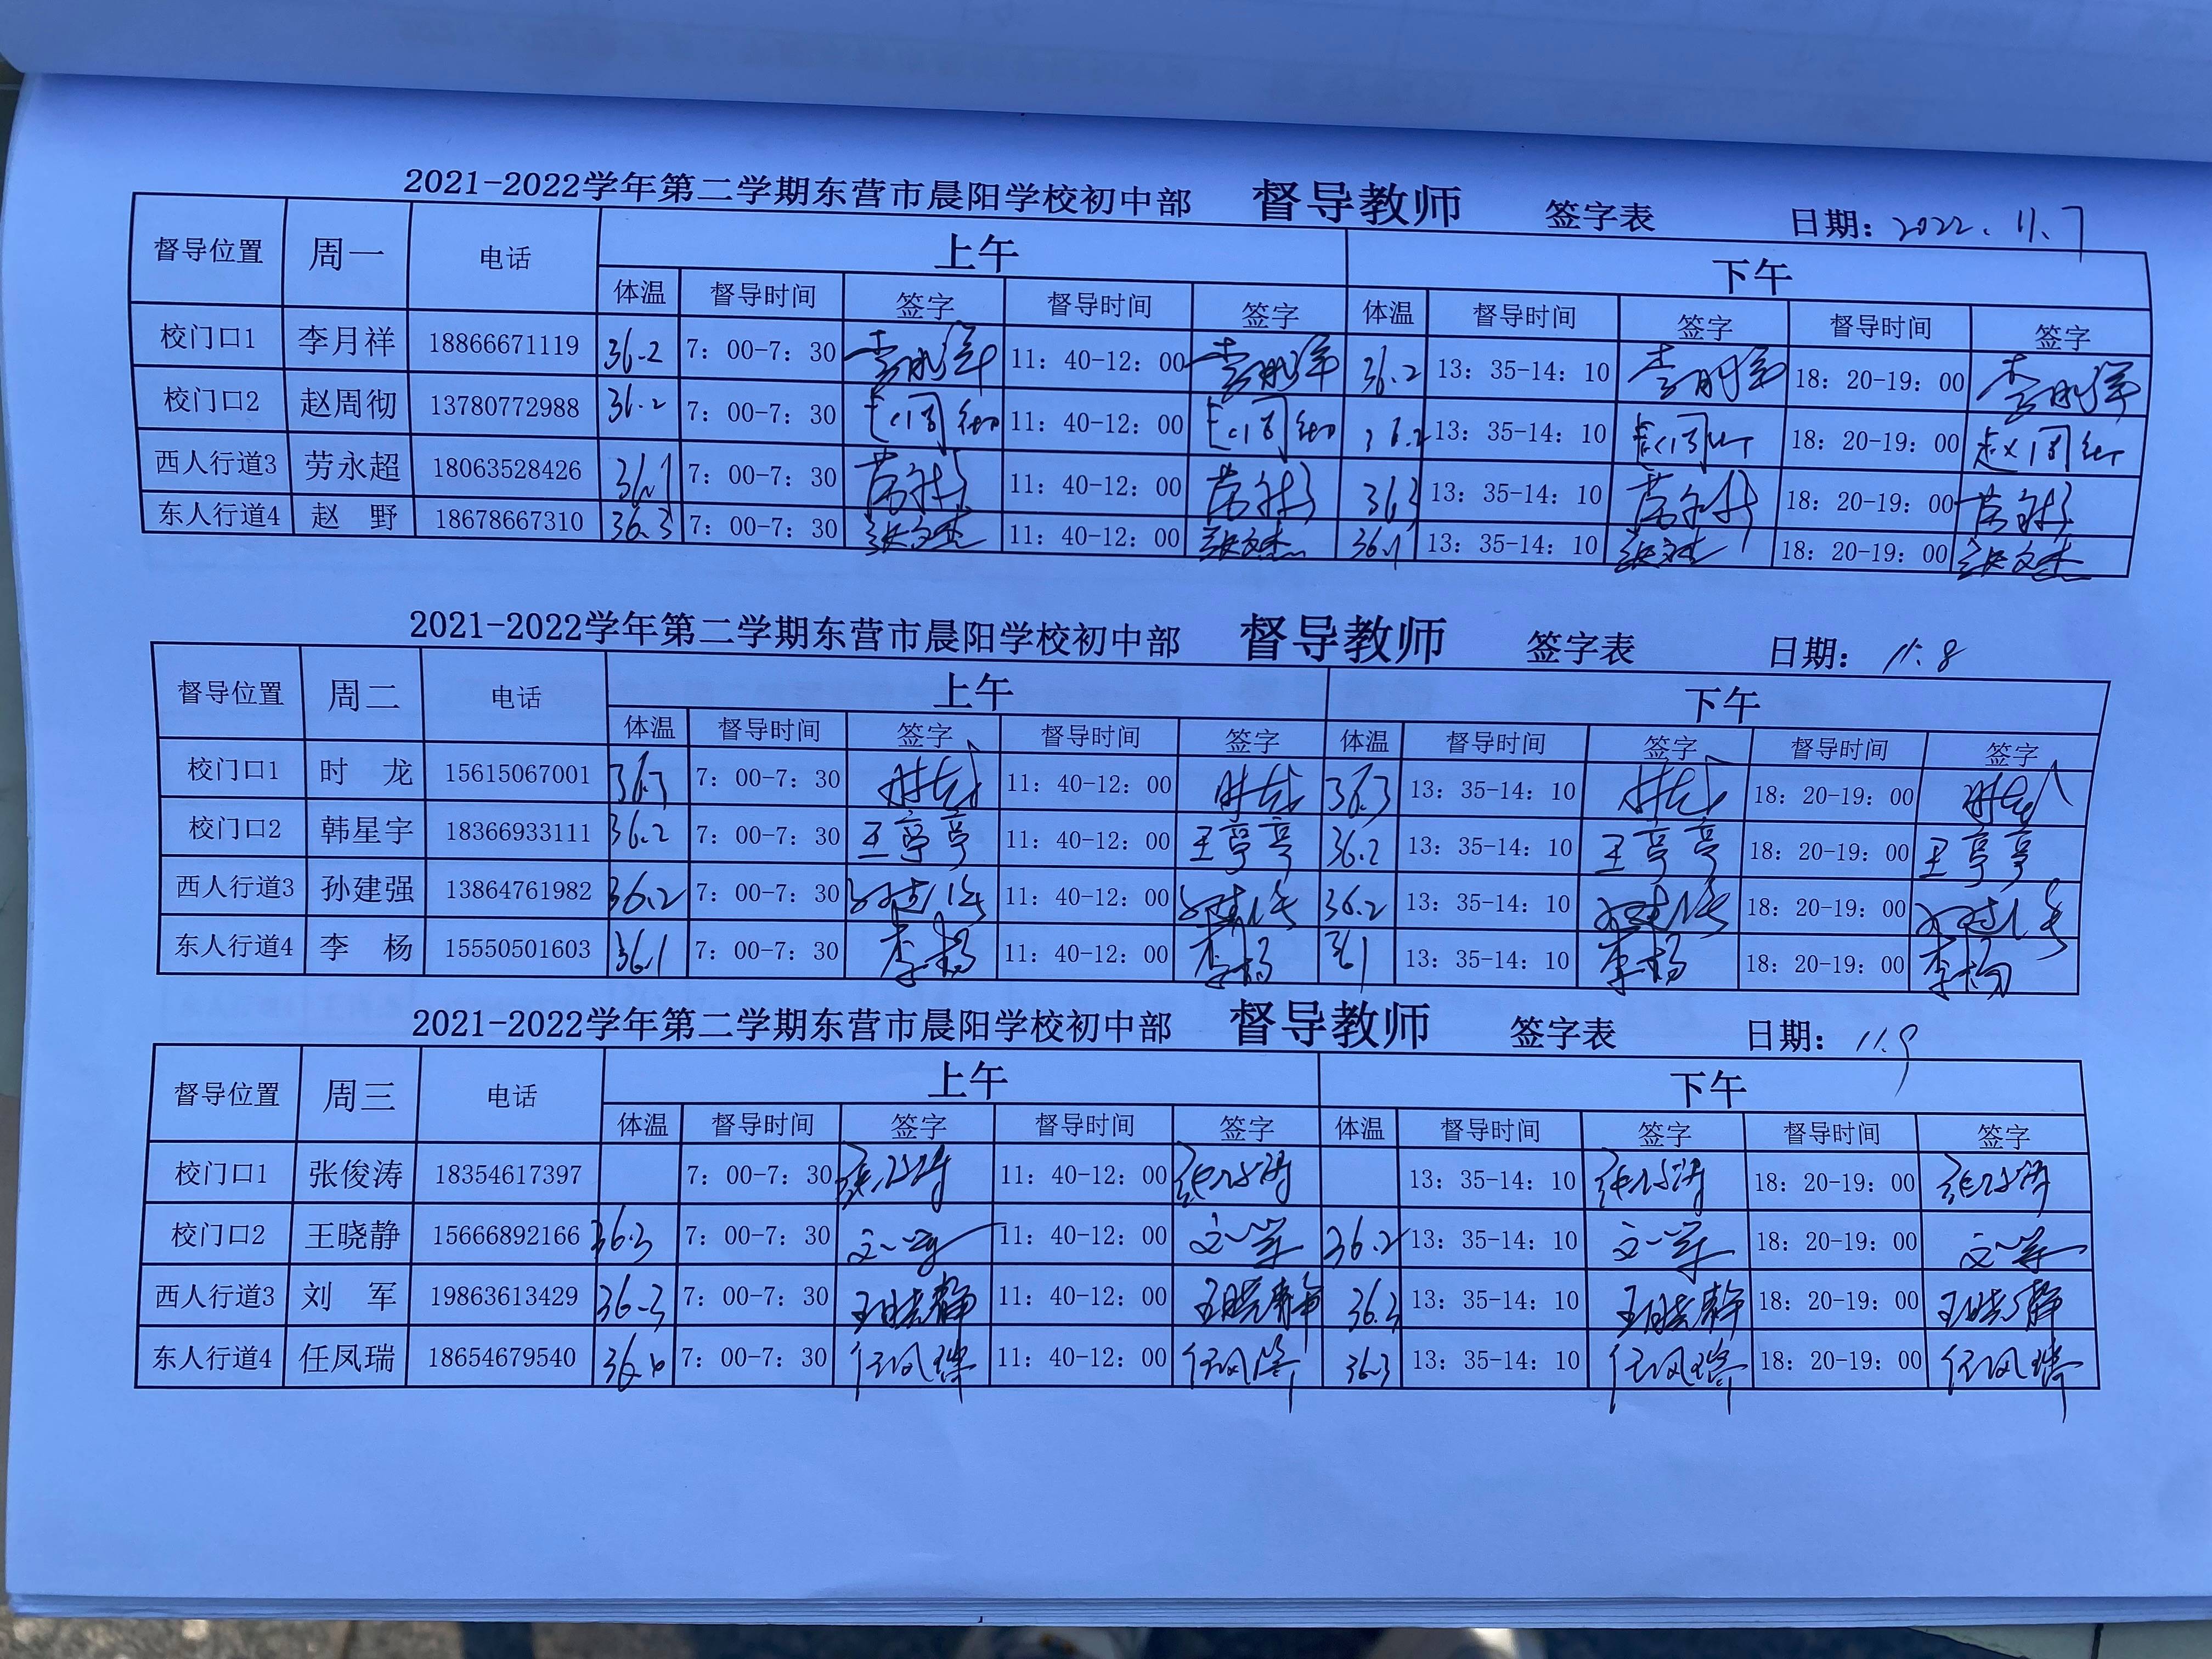 2021-2022学年第二学期东营市晨阳学校初中部 督导教师 签字表 日期：2022.11.7
督导位置 周一 电话 上午 下午
体温 督导时间 签字 督导时间 签字 体温 督导时间 签字 督导时间 签字
校门口1 李月祥 18866671119 36.2 7：00-7：30 李月祥 11：40-12：00 李月祥 36.2 13：35-14：10 李月祥 18：20-19：00 李月祥
校门口2 赵周彻 13780772988 36.2 7：00-7：30 赵周彻 11：40-12：00 赵周彻 36.2 13：35-14：10 赵周彻 18：20-19：00 赵周彻
西人行道3 劳永超 18063528426 36.1 7：00-7：30 劳永超 11：40-12：00 劳永超 36.3 13：35-14：10 劳永超 18：20-19：00 劳永超
东人行道4 赵 野 18678667310 36.3 7：00-7：30 张文杰 11：40-12：00 张文杰 36.1 13：35-14：10 张文杰 18：20-19：00 张文杰
2021-2022学年第二学期东营市晨阳学校初中部 督导教师 签字表 日期：11.8
督导位置 周二 电话 上午 下午
体温 督导时间 签字 督导时间 签字 体温 督导时间 签字 督导时间 签字
校门口1 时 龙 15615067001 36.3 7：00-7：30 时龙 11：40-12：00 时龙 36.3 13：35-14：10 时龙 18：20-19：00 时龙
校门口2 韩星宇 18366933111 36.2 7：00-7：30 王亭亭 11：40-12：00 王亭亭 36.2 13：35-14：10 王亭亭 18：20-19：00 王亭亭
西人行道3 孙建强 13864761982 36.2 7：00-7：30 孙建强 11：40-12：00 孙建强 36.2 13：35-14：10 孙建强 18：20-19：00 孙建强
东人行道4 李 杨 15550501603 36.1 7：00-7：30 李杨 11：40-12：00 李杨 36.1 13：35-14：10 李杨 18：20-19：00 李杨
2021-2022学年第二学期东营市晨阳学校初中部 督导教师 签字表 日期：11.9
督导位置 周三 电话 上午 下午
体温 督导时间 签字 督导时间 签字 体温 督导时间 签字 督导时间 签字
校门口1 张俊涛 18354617397 7：00-7：30 张俊涛 11：40-12：00 张俊涛 13：35-14：10 张俊涛 18：20-19：00 张俊涛
校门口2 王晓静 15666892166 36.3 7：00-7：30 11：40-12：00 36.2 13：35-14：10 18：20-19：00
西人行道3 刘 军 19863613429 36.3 7：00-7：30 王晓静 11：40-12：00 王晓静 36.3 13：35-14：10 王晓静 18：20-19：00 王晓静
东人行道4 任凤瑞 18654679540 7：00-7：30 任凤瑞 11：40-12：00 任凤瑞 36.3 13：35-14：10 任凤瑞 18：20-19：00 任凤瑞